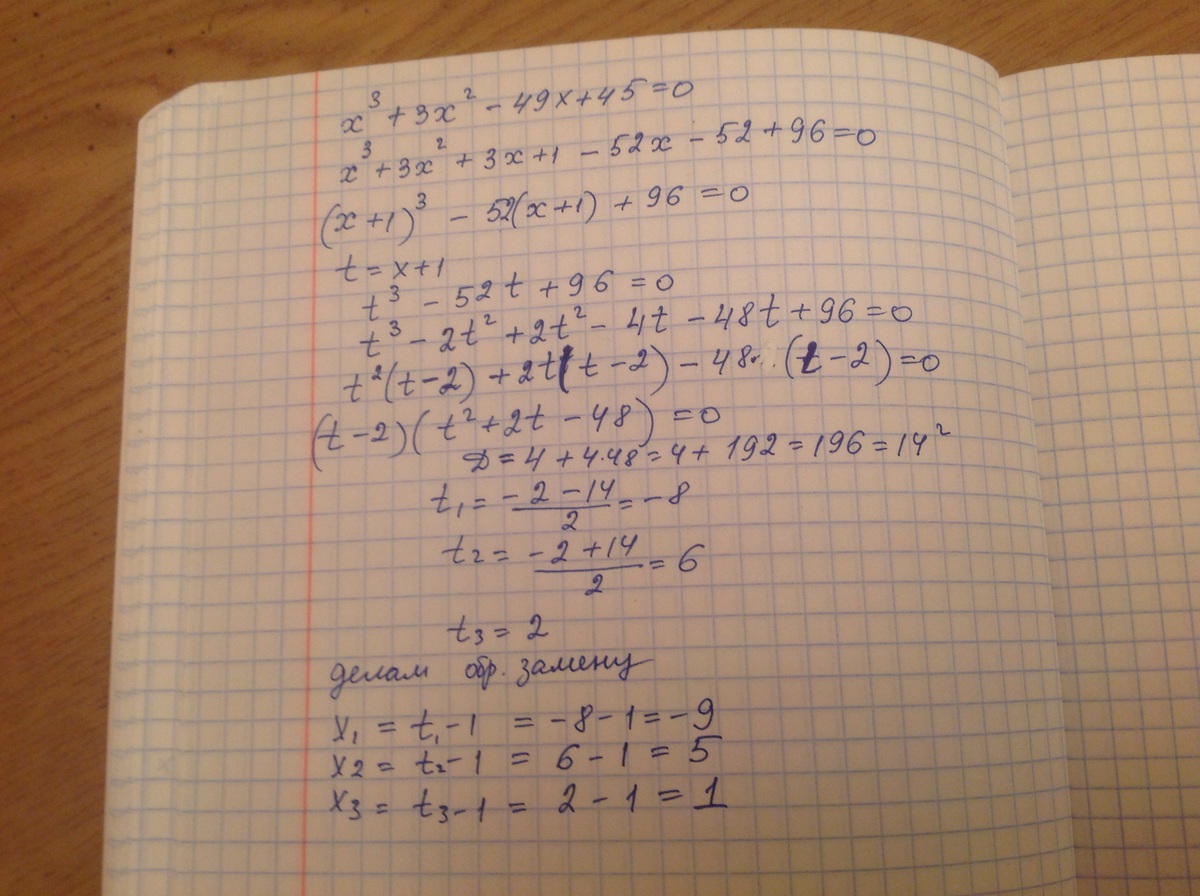 x³ + 3x² - 49x + 45 = 0
x³ + 3x² + 3x + 1 - 52x - 52 + 96 = 0
(x+1)³ - 52(x+1) + 96 = 0
t = x+1
t³ - 52t + 96 = 0
t³ - 2t² + 2t² - 4t - 48t + 96 = 0
t²(t-2) + 2t(t-2) - 48(t-2) = 0
(t-2)(t² + 2t - 48) = 0
D = 4 + 4·48 = 4 + 192 = 196 = 14²
t₁ = (-2-14)/2 = -8
t₂ = (-2+14)/2 = 6
t₃ = 2
делам обр. замену
x₁ = t₁-1 = -8-1 = -9
x₂ = t₂-1 = 6-1 = 5
x₃ = t₃-1 = 2-1 = 1